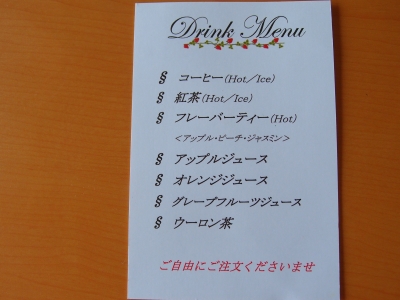 Drink Menu
§ コーヒー(Hot／Ice)
§ 紅茶(Hot／Ice)
§ フレーバーティー(Hot)
＜アップル・ピーチ・ジャスミン＞
§ アップルジュース
§ オレンジジュース
§ グレープフルーツジュース
§ ウーロン茶
ご自由にご注文くださいませ